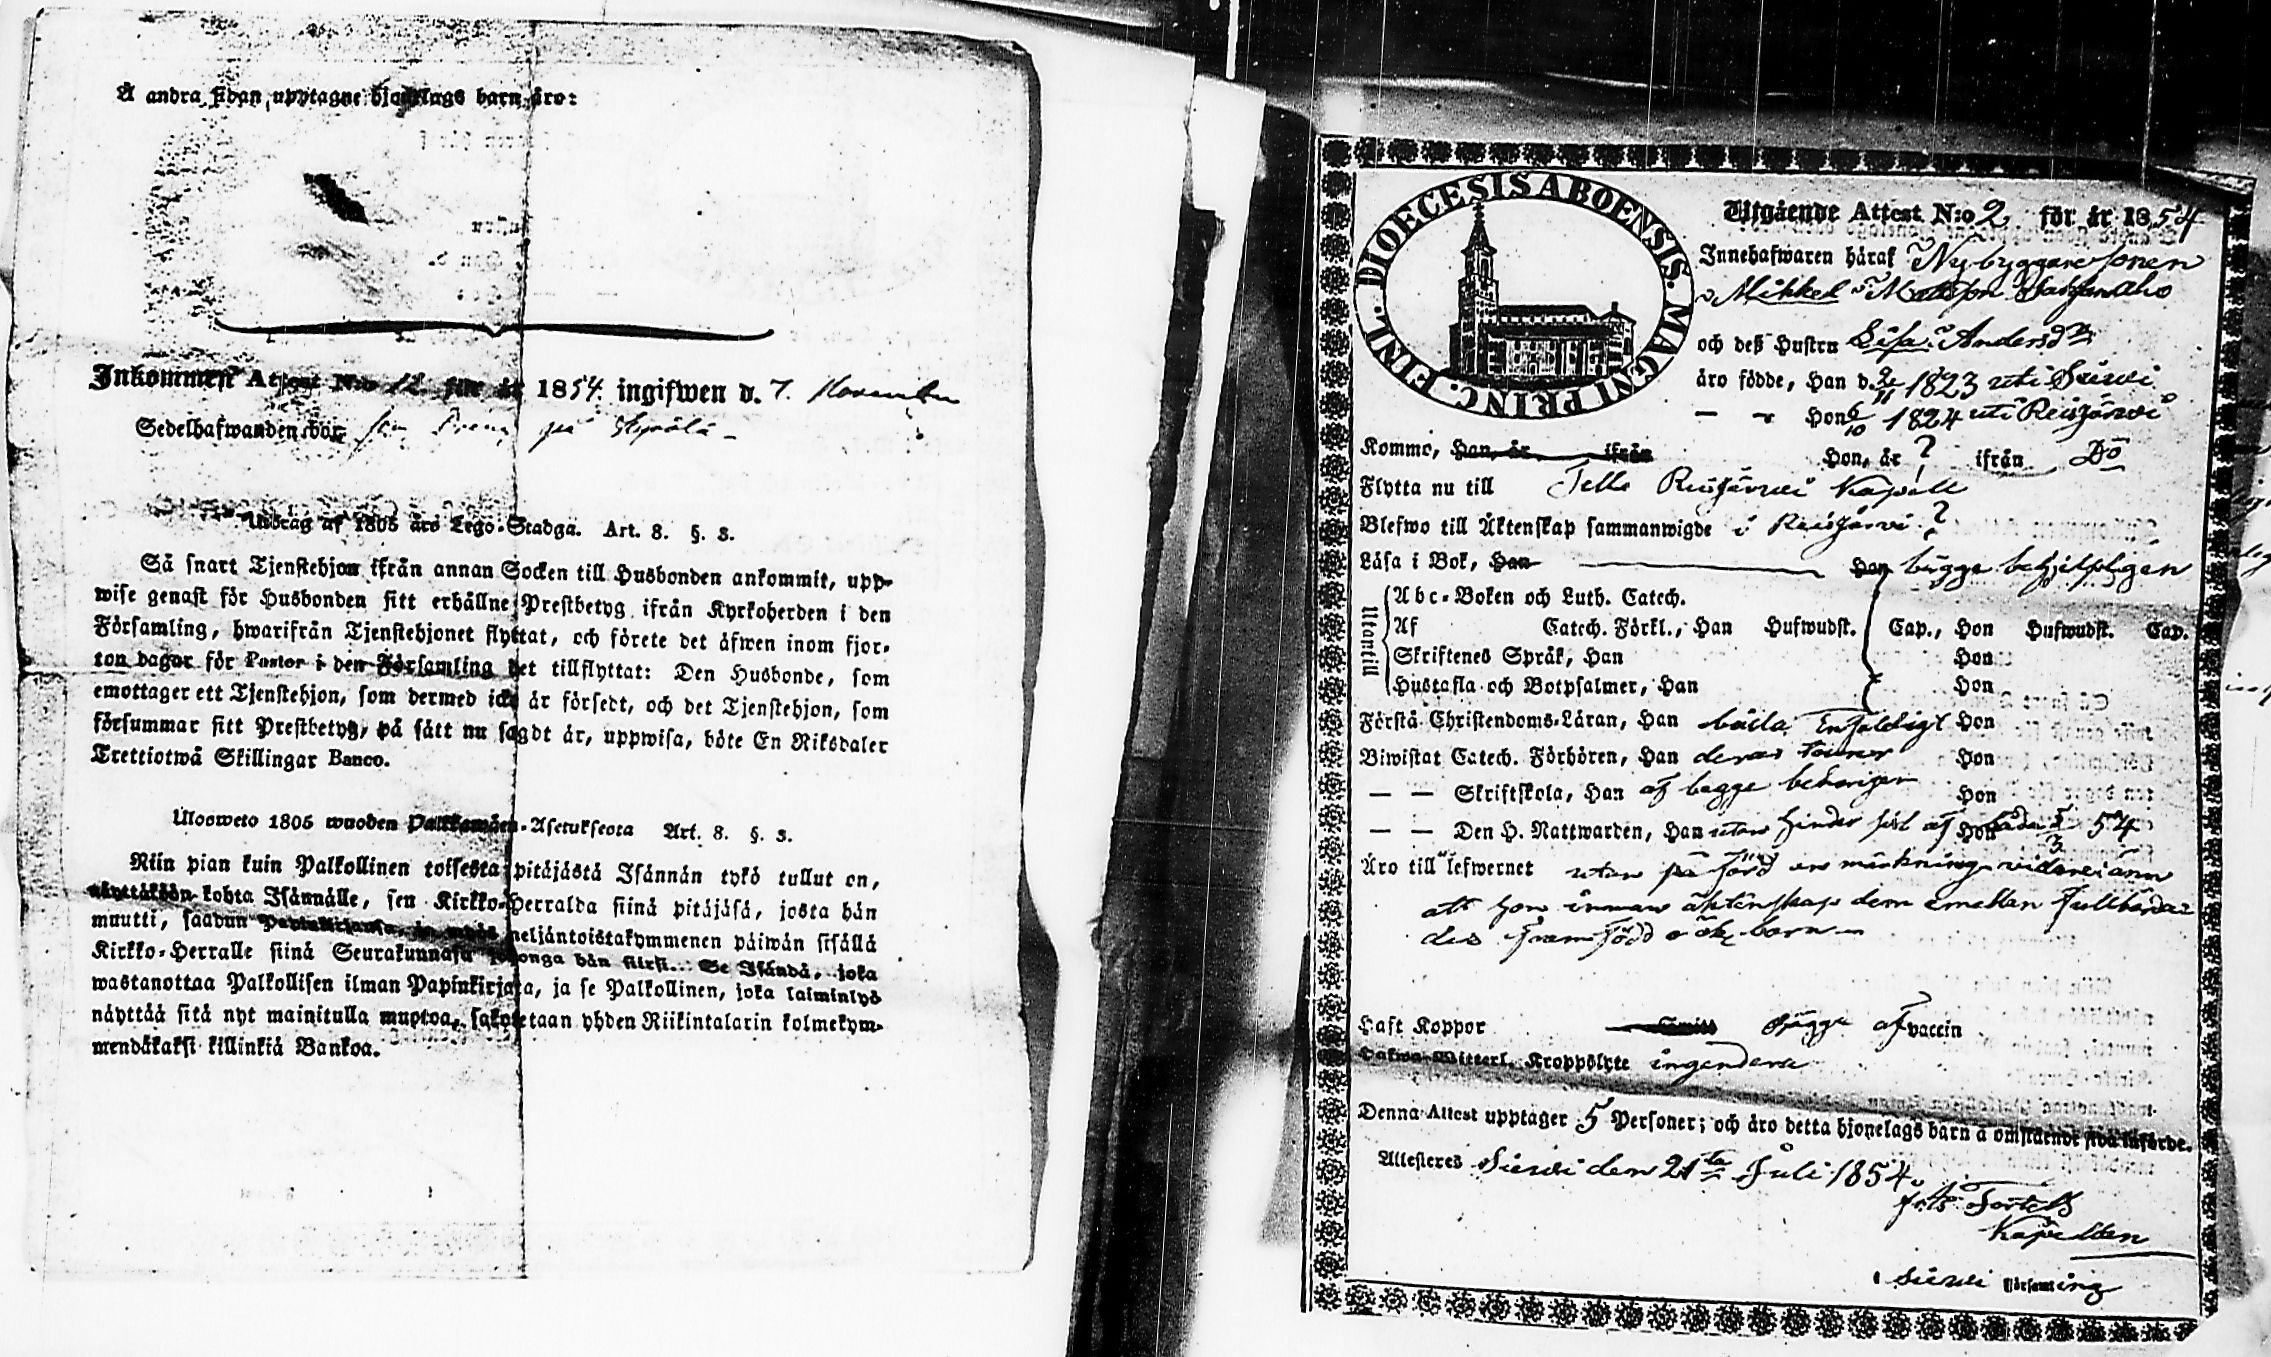 Å andra sidan upptagne hjonelags barn äro:
Inkommen Attest N:o 12 för år 1854 ingifwen d. 7. November
Sedelhafwanden bör på
Utdrag af 1805 års Lego-Stadga. Art. 8. §. 3.
Så snart Tjenstehjon ifrån annan Socken till Husbonden ankommit, upp-
wise genast för Husbonden sitt erhållne Prestbetyg ifrån Kyrkoherden i den
Församling, hwarifrån Tjenstehjonet flyttat, och förete det äfwen inom fjor-
ton dagar för Pastor i den Församling det tillflyttat: Den Husbonde, som
emottager ett Tjenstehjon, som dermed icke är försedt, och det Tjenstehjon, som
försummar sitt Prestbetyg, på sätt nu sagdt är, uppwisa, böte En Riksdaler
Trettiotwå Skillingar Banco.
Ulosweto 1805 wuoden Palkkawäen-Asetuksesta Art. 8. §. 3.
Niin pian kuin Palkollinen toisesta pitäjästä Isännän tykö tullut on,
näyttäköön kohta Isännälle, sen Kirkko-Herralda siinä pitäjäsä, josta hän
muutti, saadun Papinkirjansa, ja myös neljäntoistakymmenen päiwän sisällä
Kirkko-Herralle siinä Seurakunnasa johonga hän siirsi. Se Isändä, joka
wastanottaa Palkollisen ilman Papinkirjata, ja se Palkollinen, joka laiminlyö
näyttää sitä nyt mainitulla muotoa, sakotetaan yhden Riikintalarin kolmekym-
mendäkaksi killinkiä Bankoa.
DIOECESIS ABOENSIS. MAGNI PRINC. FINL.
Utgående Attest N:o 2 för år 1854
Innehafwaren häraf Nybyggaresonen
Mikkel Mattsson
och deß Hustru Lisa Andersdr
äro födde, Han d. 2/11 1823 uti Siewi
— — Hon 6/10 1824 uti Reisjärwi
Kommo, Han, år ifrån Hon, år ? ifrån Do
Flytta nu till Reisjärwi Kapell
Blefwo till Äktenskap sammanwigde i Reisjärwi ?
Läsa i Bok, Han Hon bägge behjelpligen
Utantill
Abc-Boken och Luth. Catech.
Af Catech. Förkl., Han Hufwudst. Cap., Hon Hufwudst. Cap.
Skriftenes Språk, Han Hon
Hustafla och Botpsalmer, Han Hon
Förstå Christendoms-Läran, Han båda Enfaldigt Hon
Biwistat Catech. Förhören, Han deras Hon
— — Skriftskola, Han af bägge behörigen Hon
— — Den H. Nattwarden, Han utan hinder af Hon båda 54
Äro till lefwernet utan
att hon innan äktenskap dem emellan fullbordades
framfödt oäkta barn
Haft Koppor Smitt Bägge af vaccin
Hafwa Witterl. Kroppslyte ingendera
Denna Attest upptager 5 Personer; och äro detta hjonelags barn å omstående sida införde.
Attesteres Siewi den 21ta Juli 1854.
Kapellan
i Siewi Församling